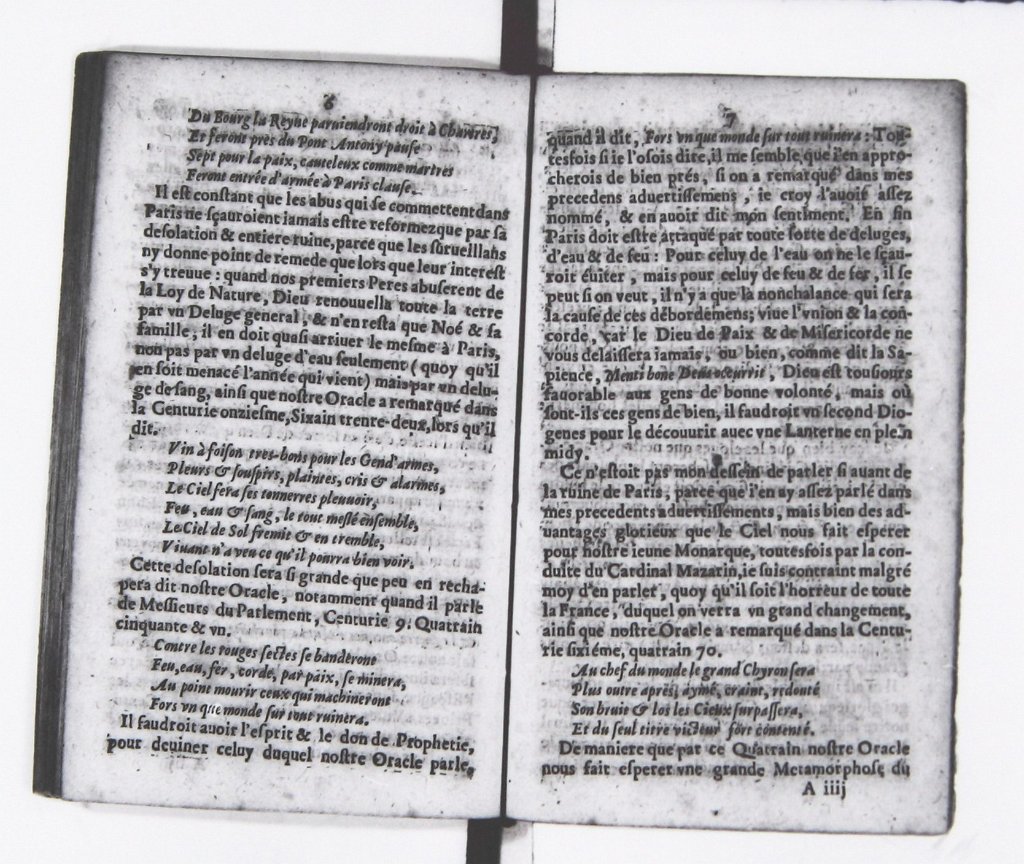 6
Du Bourg la Reyne paruiendront droit à Chartres,
Et feront près du Pont Antony pause
Sept pour la paix, cauteleux comme martres
Feront entrée d'armée à Paris clause.
Il est constant que les abus qui se commettent dans
Paris ne sçauroient iamais estre reformez que par sa
desolation & entiere ruine, parce que les surueillans
ny donne point de remede que lors que leur interest
s'y treuue : quand nos premiers Peres abuserent de
la Loy de Nature, Dieu renouuella toute la terre
par vn Deluge general, & n'en resta que Noé & sa
famille, il en doit quasi arriuer le mesme à Paris,
non pas par vn deluge d'eau seulement (quoy qu'il
en soit menacé l'année qui vient) mais par vn delu-
ge de sang, ainsi que nostre Oracle a remarqué dans
la Centurie onziesme, Sixain trente-deux, lors qu'il
dit.
Vin à foison tres-bons pour les Gend'armes,
Pleurs & souspirs, plaintes, cris & alarmes,
Le Ciel fera ses tonnerres pleuuoir,
Feu, eau & sang, le tout meslé ensemble,
Le Ciel de Sol fremit & en tremble,
Viuant n'a veu ce qu'il pourra bien voir.
Cette desolation sera si grande que peu en recha-
pera dit nostre Oracle, notamment quand il parle
de Messieurs du Parlement, Centurie 9. Quatrain
cinquante & vn.
Contre les rouges sectes se banderont
Feu, eau, fer, corde, par paix, se minera,
Au point mourir ceux qui machineront
Fors vn que monde sur tout ruinera.
Il faudroit auoir l'esprit & le don de Prophetie,
pour deuiner celuy duquel nostre Oracle parle,
7
quand il dit, Fors vn que monde sur tout ruinera : Tou-
tesfois si ie l'osois dire, il me semble que i'en appro-
cherois de bien prés, si on a remarqué dans mes
precedens aduertissemens, ie croy l'auoir assez
nommé, & en auoir dit mon sentiment. En fin
Paris doit estre attaqué par toute sorte de deluges,
d'eau & de feu : Pour celuy de l'eau on ne le sçau-
roit éuiter, mais pour celuy de feu & de fer, il se
peut si on veut, il n'y a que la nonchalance qui sera
la cause de ces débordemens; viue l'vnion & la con-
corde, car le Dieu de Paix & de Misericorde ne
vous delaissera iamais, ou bien, comme dit la Sa-
pience, Menti bone Deus occurrit, Dieu est tousiours
fauorable aux gens de bonne volonté, mais où
sont-ils ces gens de bien, il faudroit vn second Dio-
genes pour le découurir auec vne Lanterne en plein
midy.
Ce n'estoit pas mon dessein de parler si auant de
la ruine de Paris, parce que i'en ay assez parlé dans
mes precedents aduertissements, mais bien des ad-
uantages glorieux que le Ciel nous fait esperer
pour nostre ieune Monarque, toutesfois par la con-
duite du Cardinal Mazarin, ie suis contraint malgré
moy d'en parler, quoy qu'il soit l'horreur de toute
la France, duquel on verra vn grand changement,
ainsi que nostre Oracle a remarqué dans la Centu-
rie sixiéme, quatrain 70.
Au chef du monde le grand Chyron sera
Plus outre après aymé, craint, redouté
Son bruit & los les Cieux surpassera,
Et du seul titre victeur fort contenté.
De maniere que par ce Quatrain nostre Oracle
nous fait esperer vne grande Metamorphose du
A iiij